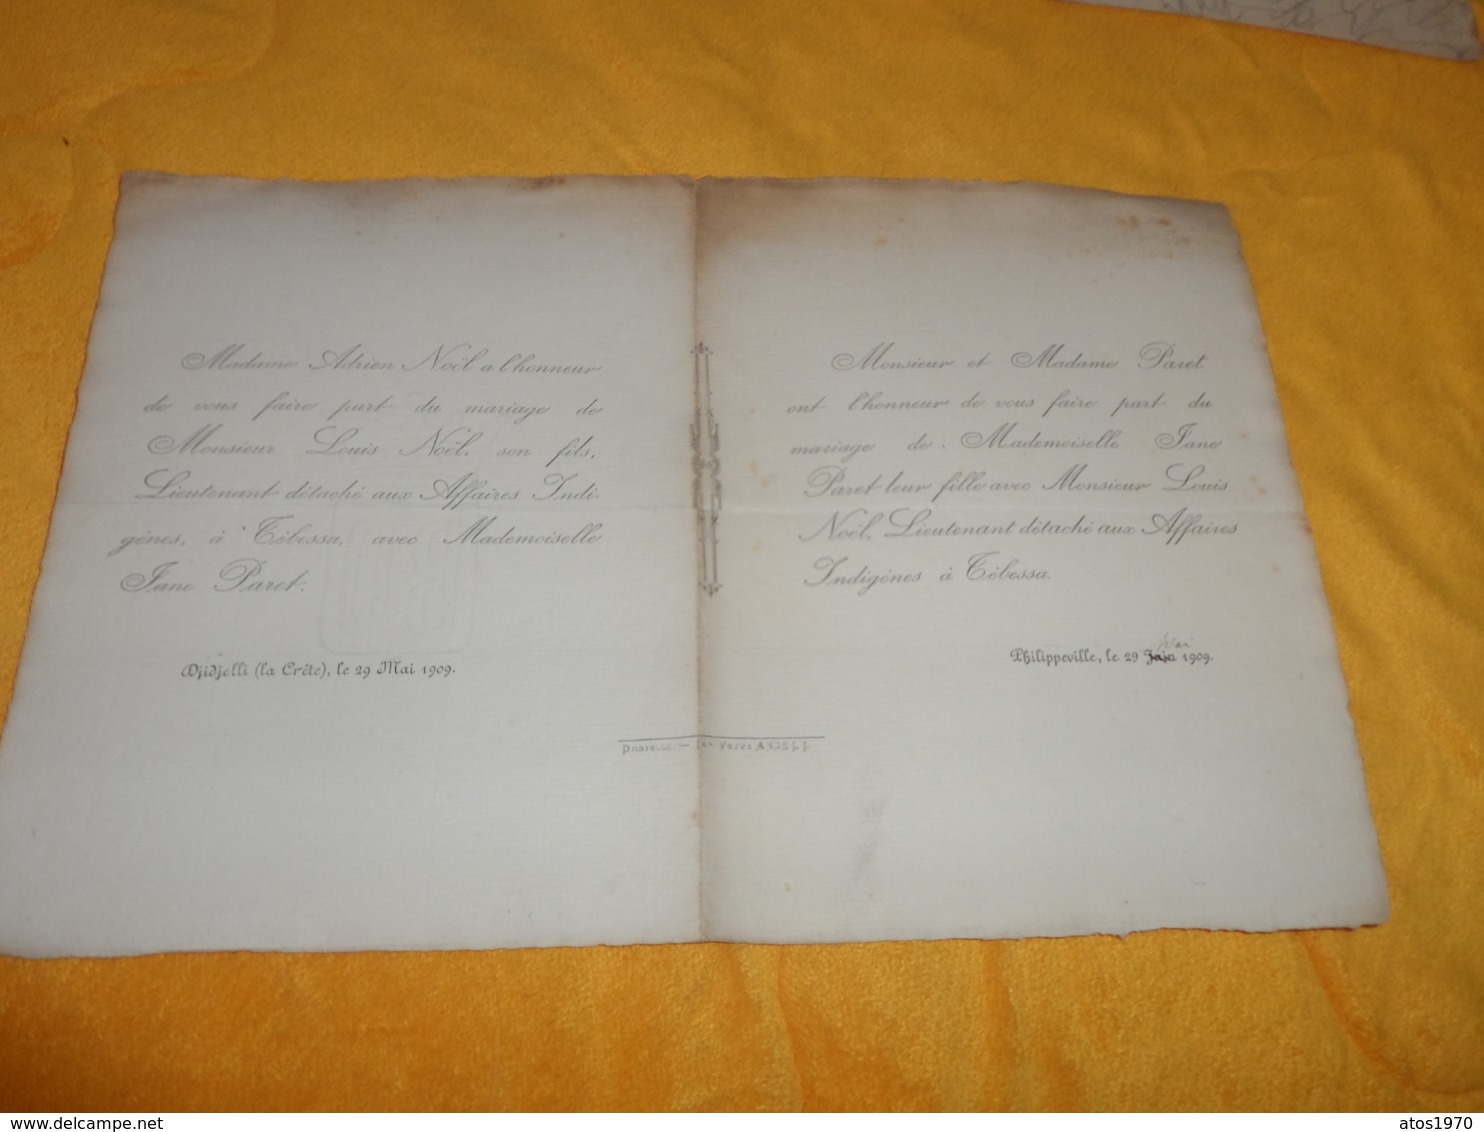 Madame Adrien Noël a l'honneur
de vous faire part du mariage de
Monsieur Louis Noël, son fils,
Lieutenant détaché aux Affaires Indi-
gènes, à Tébessa, avec Mademoiselle
Jane Paret.
Djidjelli (la Crête), le 29 Mai 1909.
Monsieur et Madame Paret
ont l'honneur de vous faire part du
mariage de Mademoiselle Jane
Paret leur fille avec Monsieur Louis
Noël, Lieutenant détaché aux Affaires
Indigènes à Tébessa.
Mai
Philippeville, le 29 Juin 1909.
Djidjelli. — Veuve ANGELI
delcampe.net
atos1970